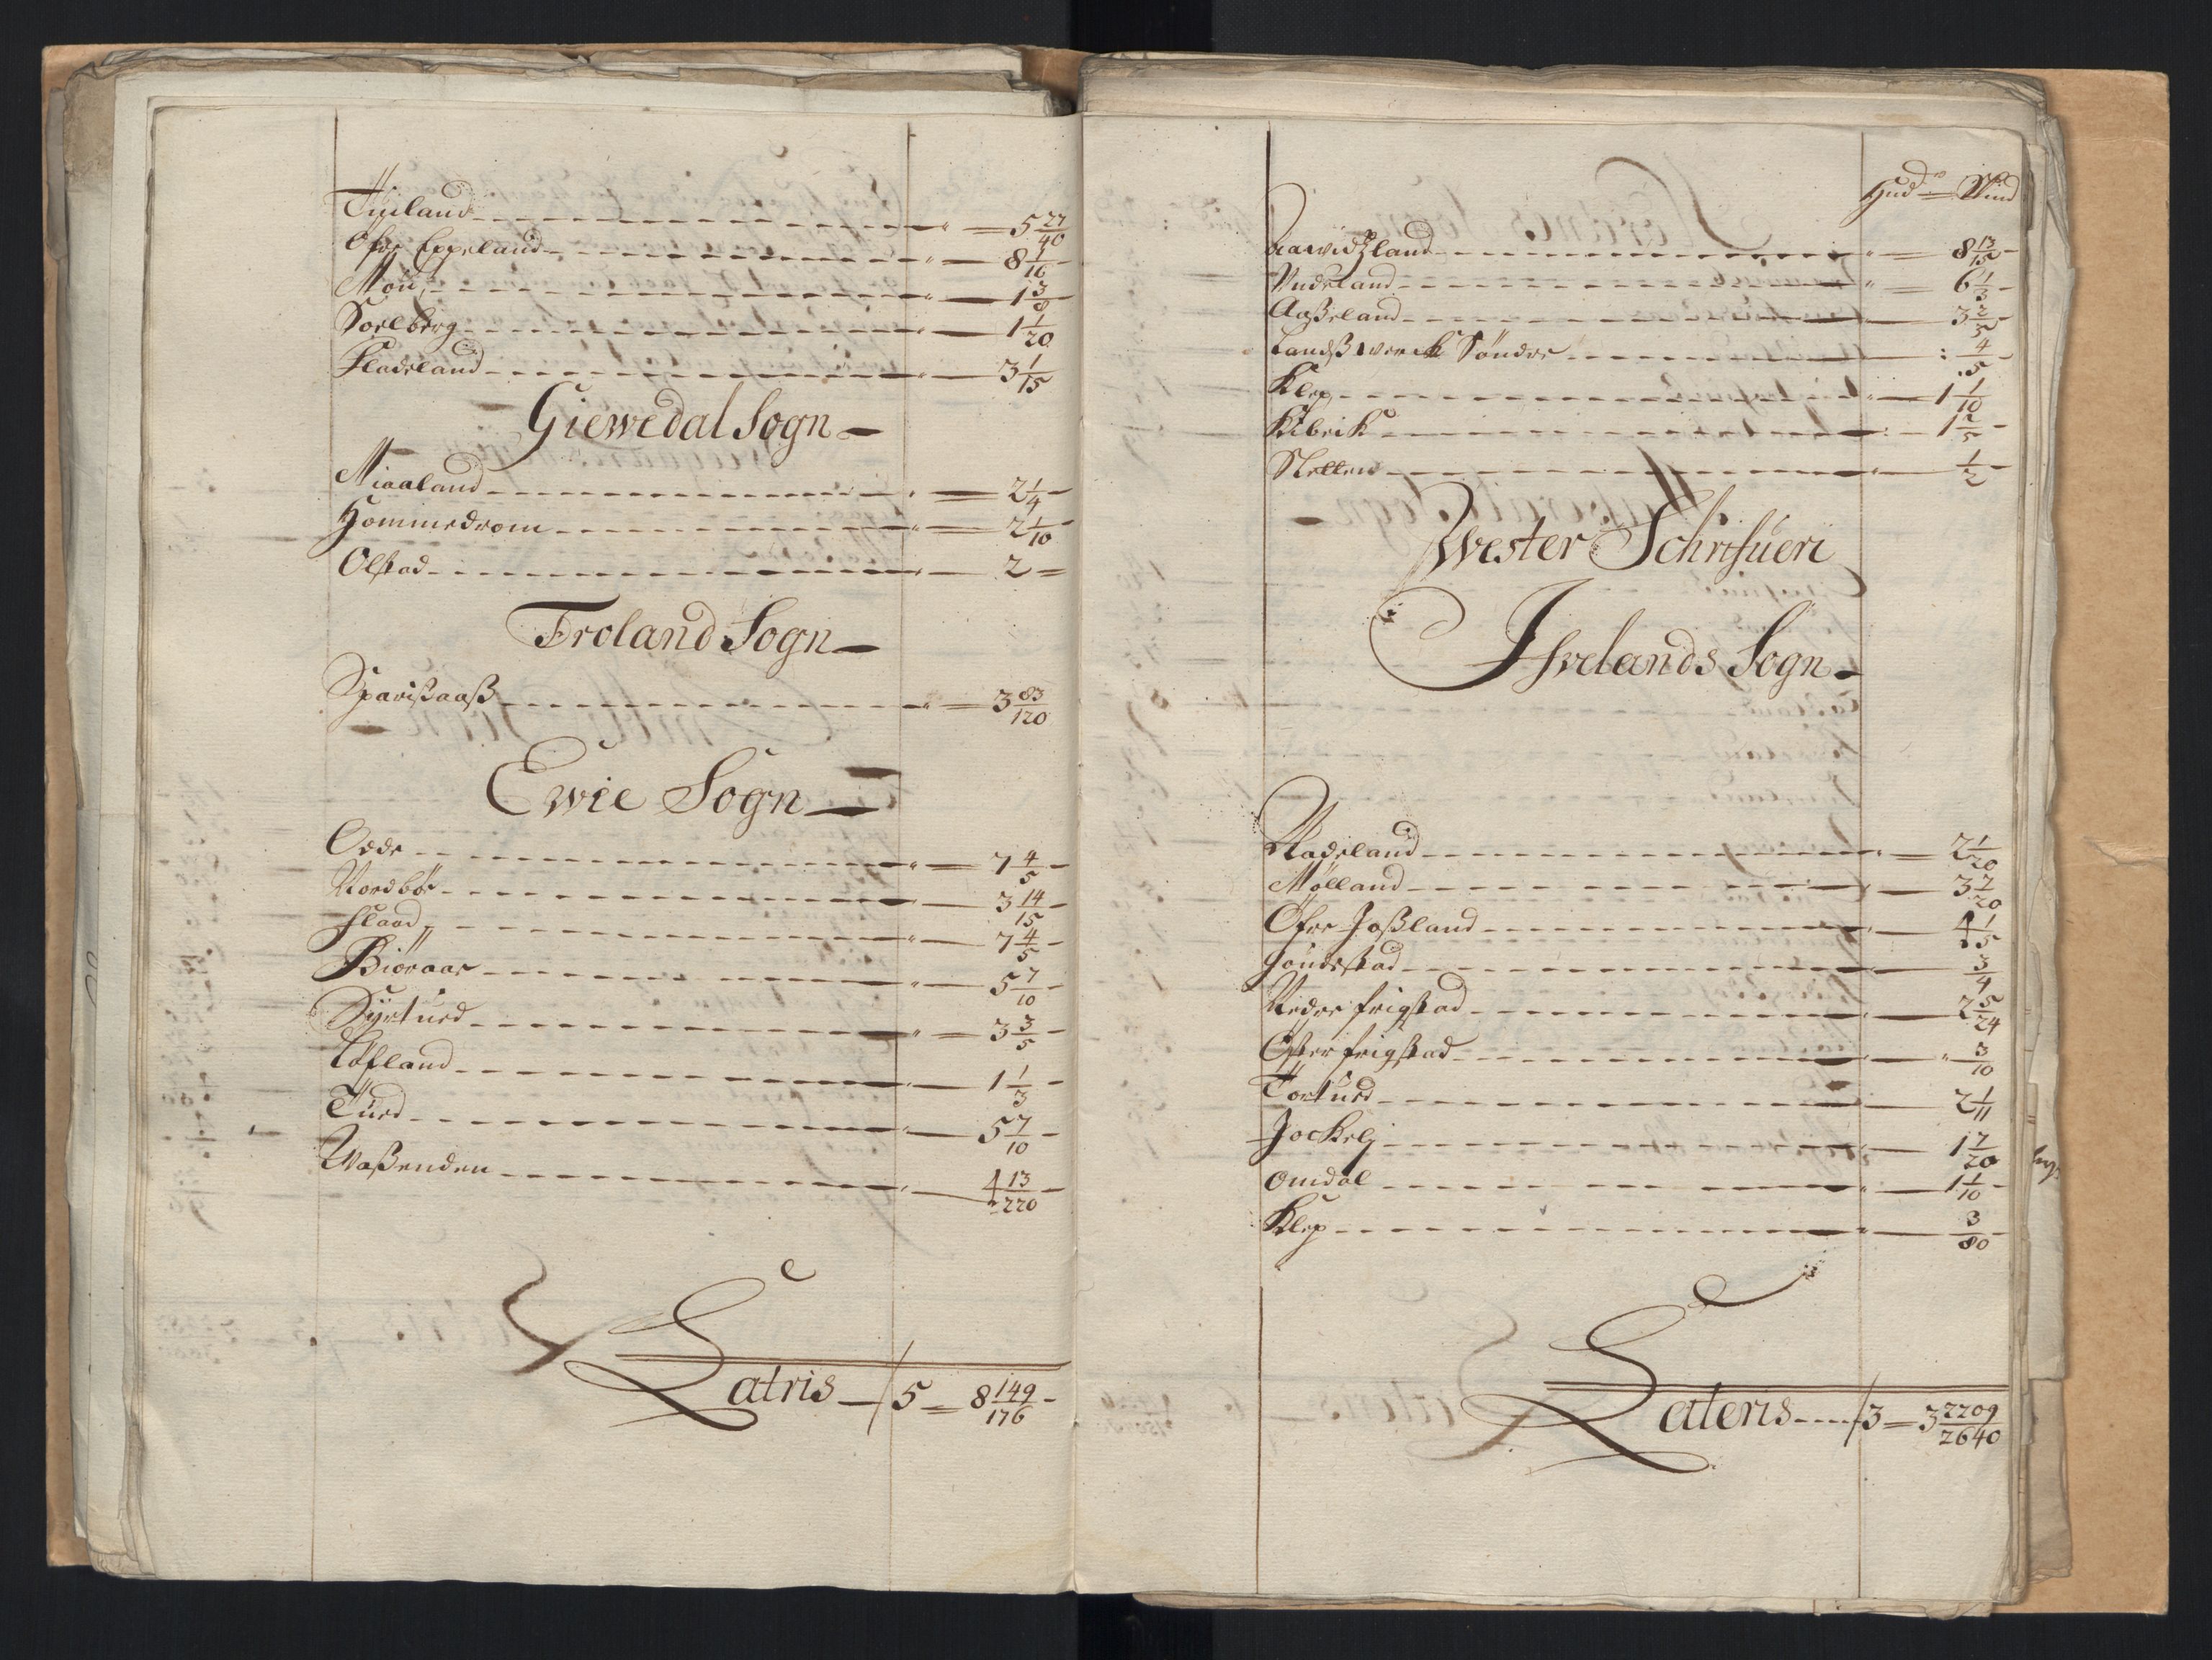 Tiuland — 5 27/40
Ofre Eppeland — 8 1/16
Mou — 1 3/8
Soelberg — 1 1/20
Fladeland — 3 1/15
Giewedal Sogn
Miaaland — 2 1/4
Hommedrom — 2 1/10
Olstad — 2
Froland Sogn
Sparißaaß — 3 83/120
Ewie Sogn
Odde — 7 4/5
Nordböe — 3 14/15
Flaad — 7 4/5
Biöraae — 5 7/10
Syrtued — 3 3/5
Löfland — 1 1/3
Tued — 5 7/10
Waßenden — 4 13/220
Latris — 5 = 8 149/176
Hud = Skind
Aawidzland — 8 13/15
Vudeland — 6 1/3
Aaßeland — 3 2/5
Landßwerck Söndre — 4/5
Klep — 1 1/10
Kibeik — 1 2/5
Sletten — 1/2
Wester
Ifvelands Sogn
Nadeland — 2 1/20
Mölland — 3 7/20
Ofre Joßland — 4 1/5
Hönnestad — 3/4
Nedre frigstad — 2 5/24
Ofter frigstad — 3/10
Tortued — 2 1/11
Jockelj — 1 7/20
Omdal — 1 1/10
Klep — 3/80
Lateris — 3 = 3 2209/2640